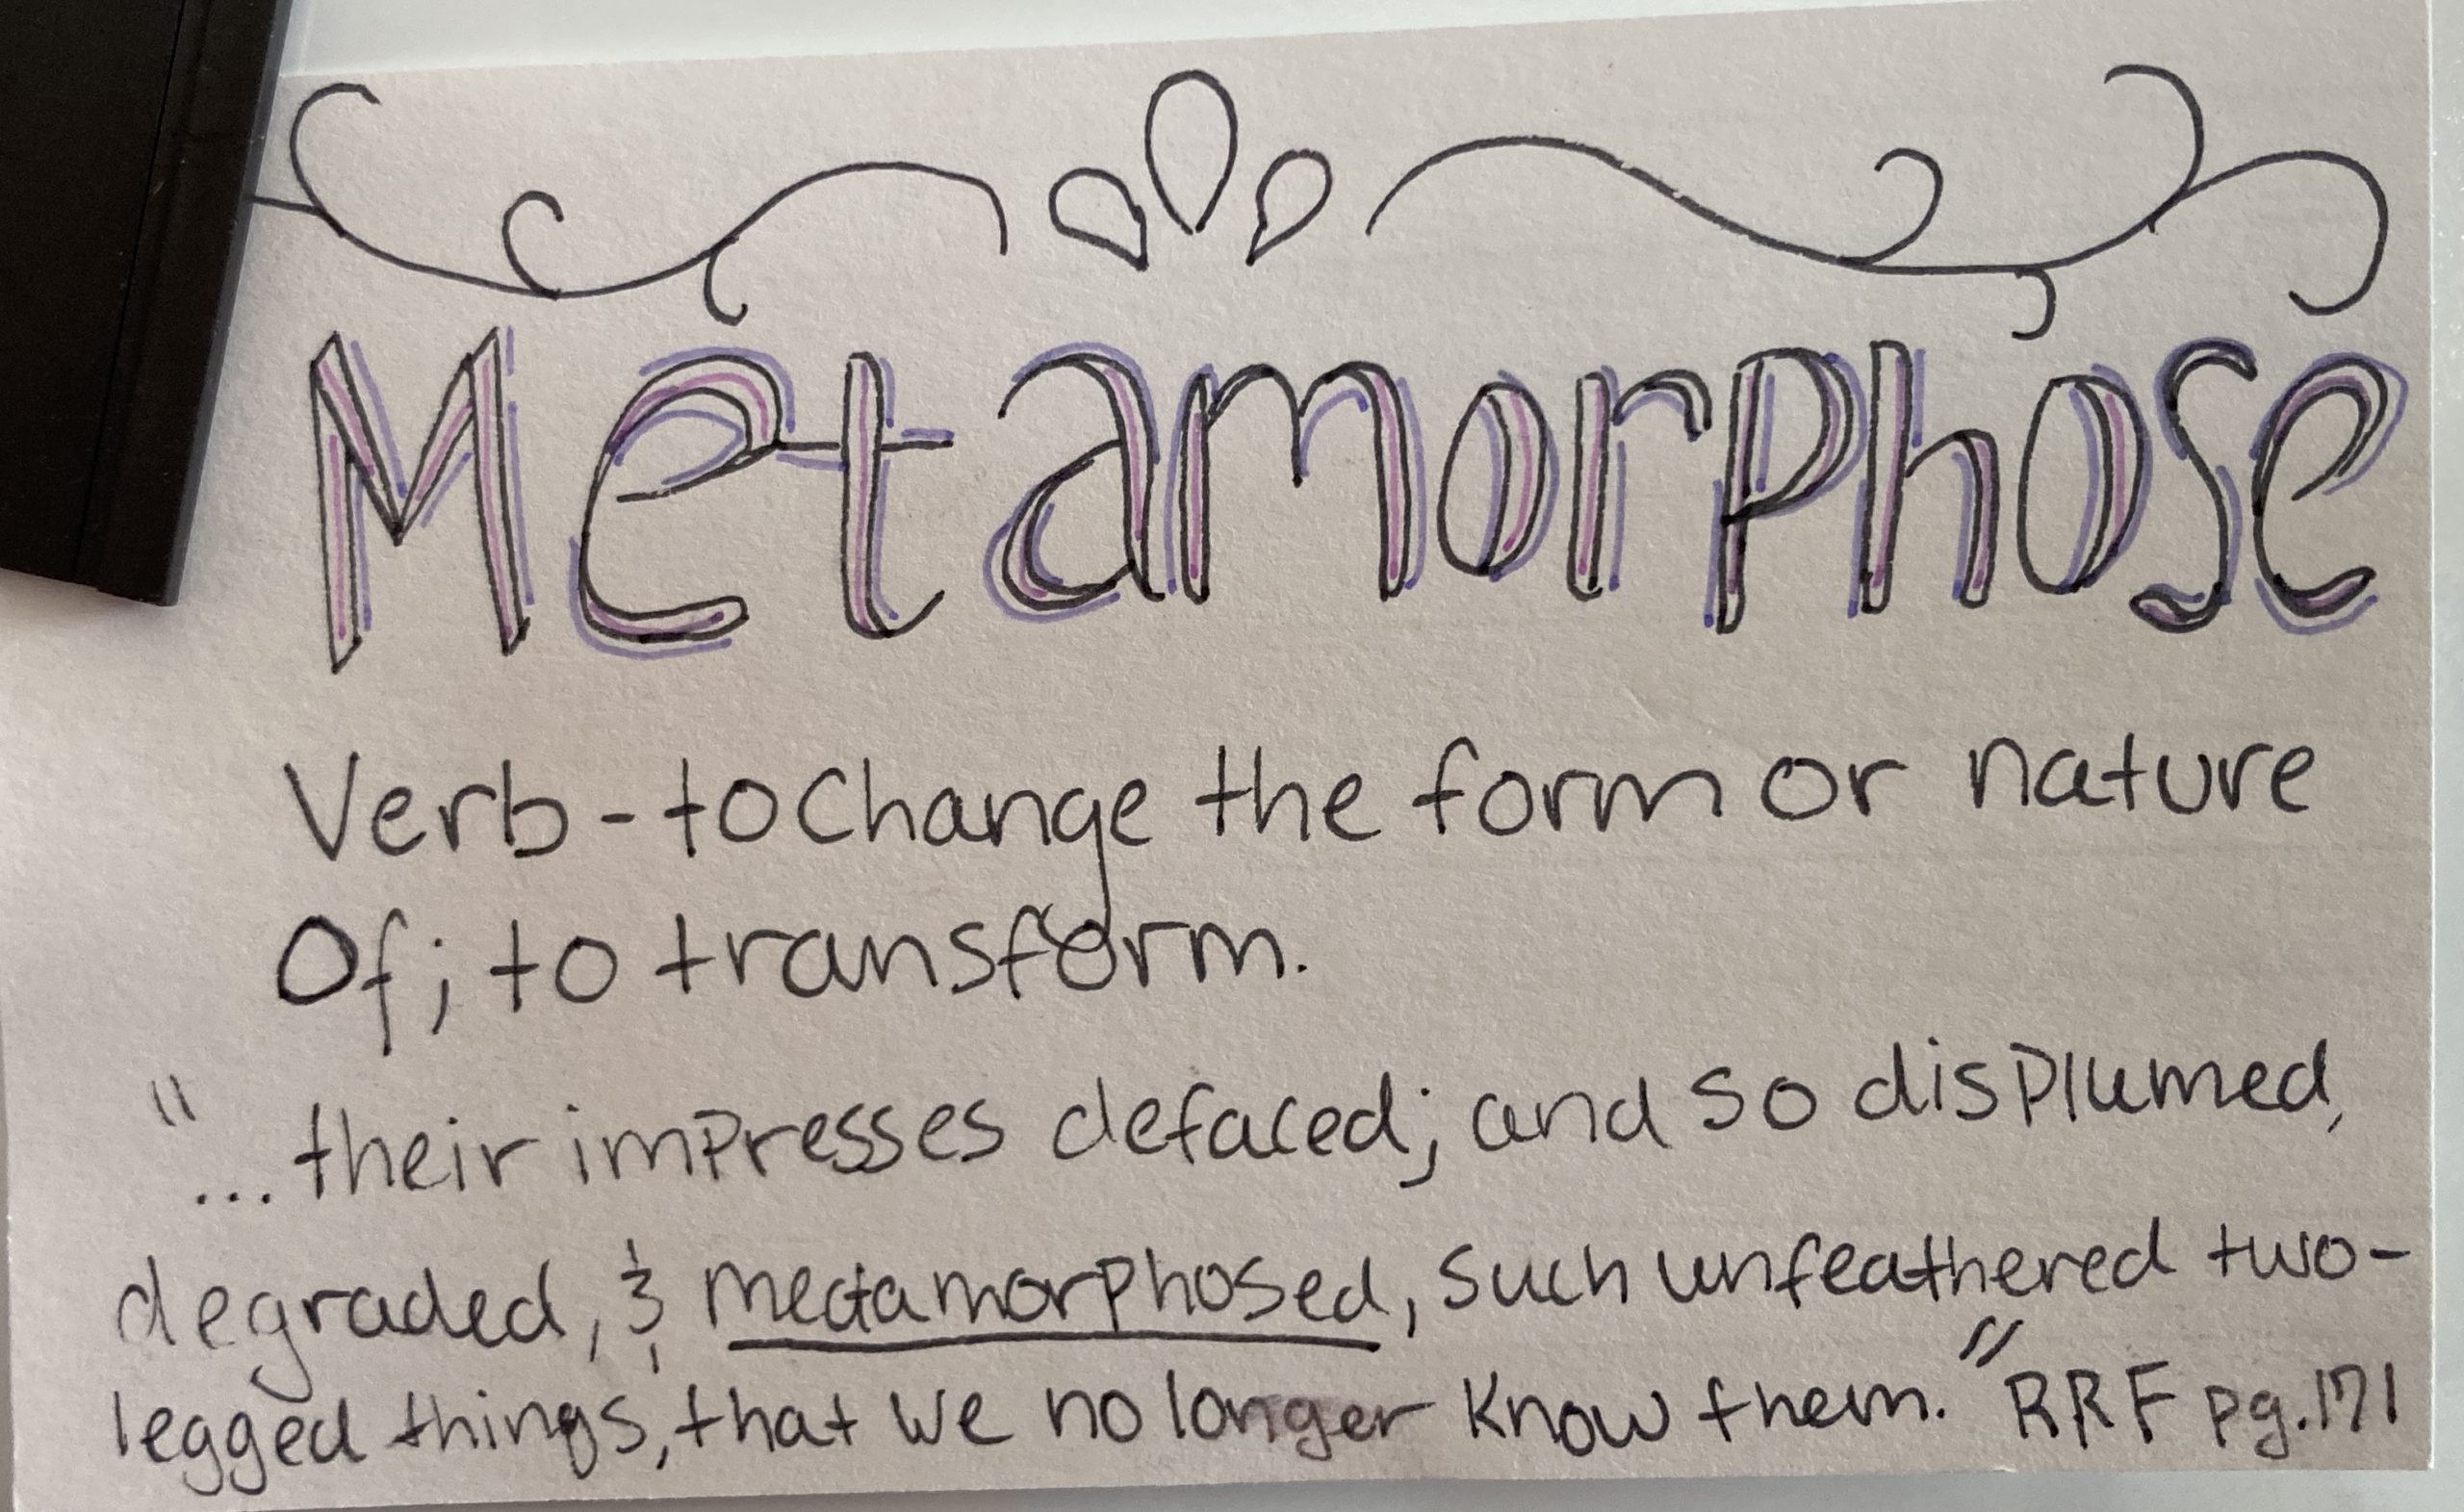 Metamorphose
Verb - to change the form or nature
Of; to transform.
"... their impresses defaced; and so displumed,
degraded, & metamorphosed, such unfeathered two-
legged things, that we no longer know them." RRF pg. 171